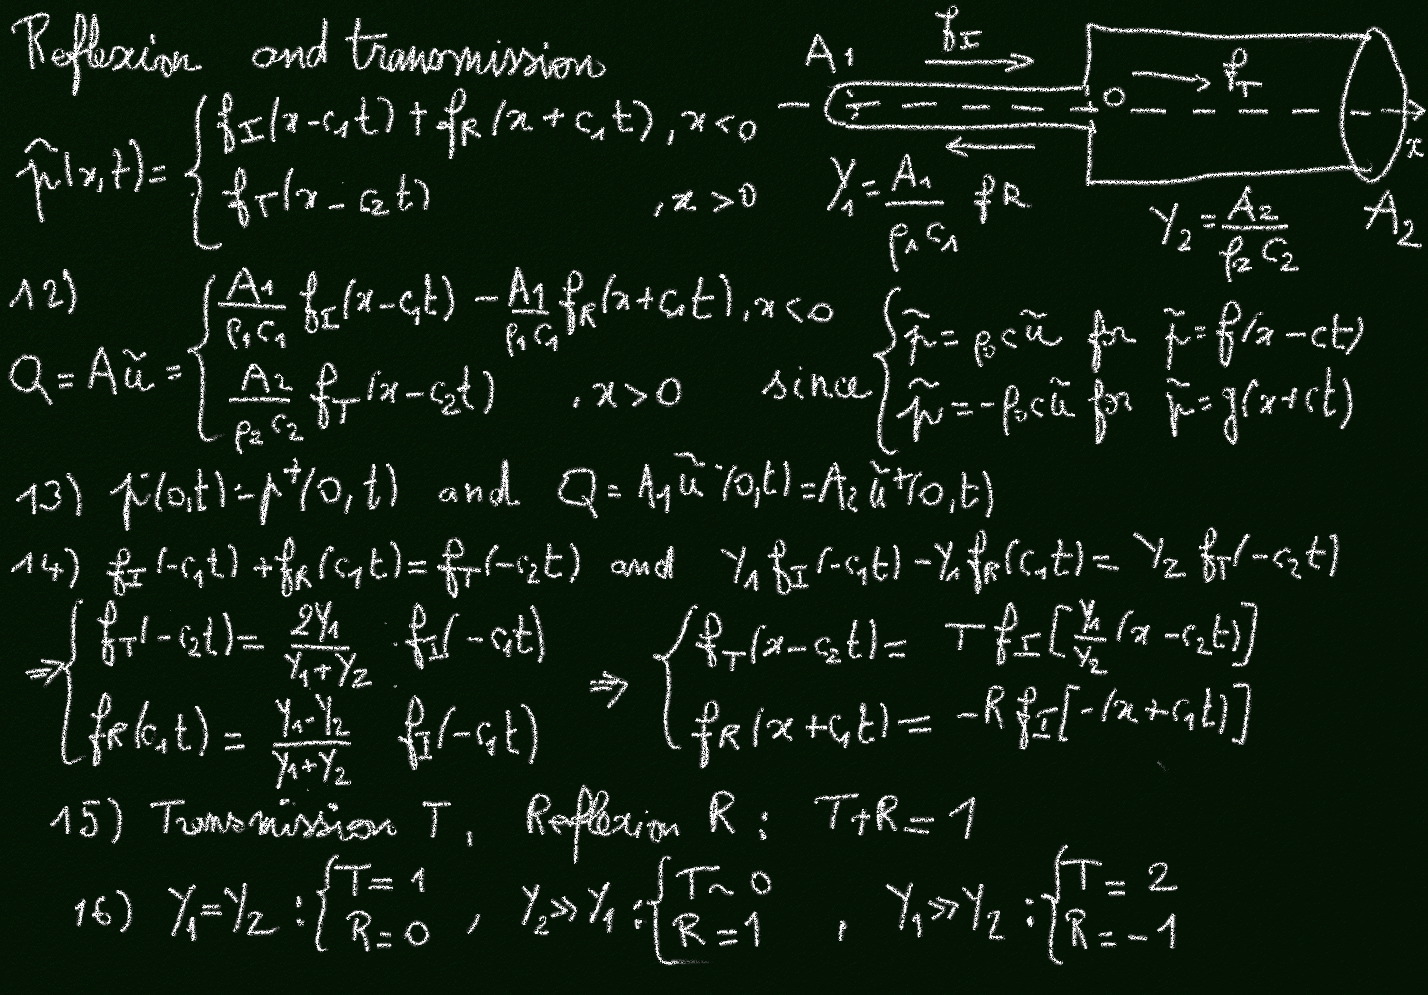 Reflexion and transmission
A1 fI → O fT → x
p̃(x,t) = { fI(x-c1t) + fR(x+c1t), x<0
fT(x-c2t) , x>0
Y1 = A1/(ρ1c1) fR Y2 = A2/(ρ2c2) A2
12)
Q = Aũ = { A1/(ρ1c1) fI(x-c1t) - A1/(ρ1c1) fR(x+c1t), x<0
A2/(ρ2c2) fT(x-c2t) , x>0
since { p̃ = ρ0cũ for p̃ = f(x-ct)
p̃ = -ρ0cũ for p̃ = g(x+ct)
13) p̃⁻(0,t) = p⁺(0,t) and Q = A1ũ⁻(0,t) = A2ũ⁺(0,t)
14) fI(-c1t) + fR(c1t) = fT(-c2t) and Y1 fI(-c1t) - Y1 fR(c1t) = Y2 fT(-c2t)
⇒ { fT(-c2t) = 2Y1/(Y1+Y2) · fI(-c1t)
fR(c1t) = (Y1-Y2)/(Y1+Y2) fI(-c1t)
⇒ { fT(x-c2t) = T fI[Y1/Y2(x-c2t)]
fR(x+c1t) = -R fI[-(x+c1t)]
15) Transmission T, Reflexion R : T+R=1
16) Y1=Y2 : { T=1 R=0 , Y2≫Y1 : { T~0 R=1 , Y1≫Y2 : { T=2 R=-1